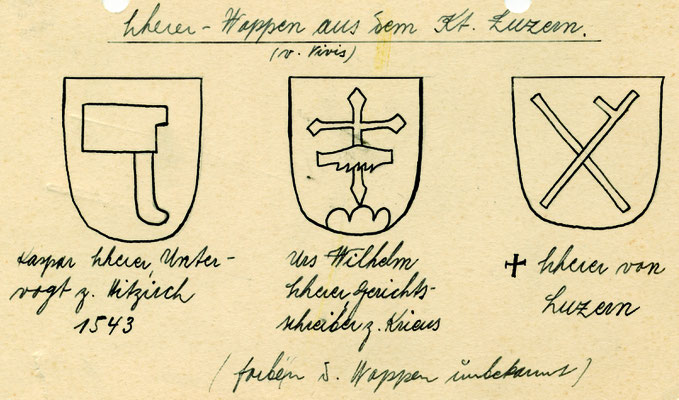 Scherer-Wappen aus dem Kt. Luzern.
(v. Vivis)
Kaspar Scherer, Unter-
vogt z. Hitzkirch
1543
Urs Wilhelm
Scherer, Gerichts-
schreiber z. Kriens
Scherer von
Luzern
(Farben d. Wappen unbekannt)